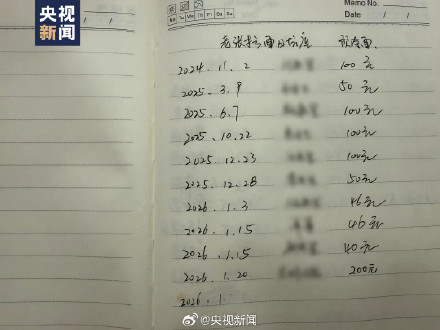 央视新闻
Memo No.
Mo Tu We Th Fr Sa Su
Date / /
老张 现金
2024.11.2 100元
2025.3.9 50元
2025.6.7 100元
2025.10.22 100元
2025.12.23 100元
2025.12.28 50元
2026.1.3 46元
2026.1.15 46元
2026.1.15 40元
2026.1.20 200元
2026.1.
@央视新闻